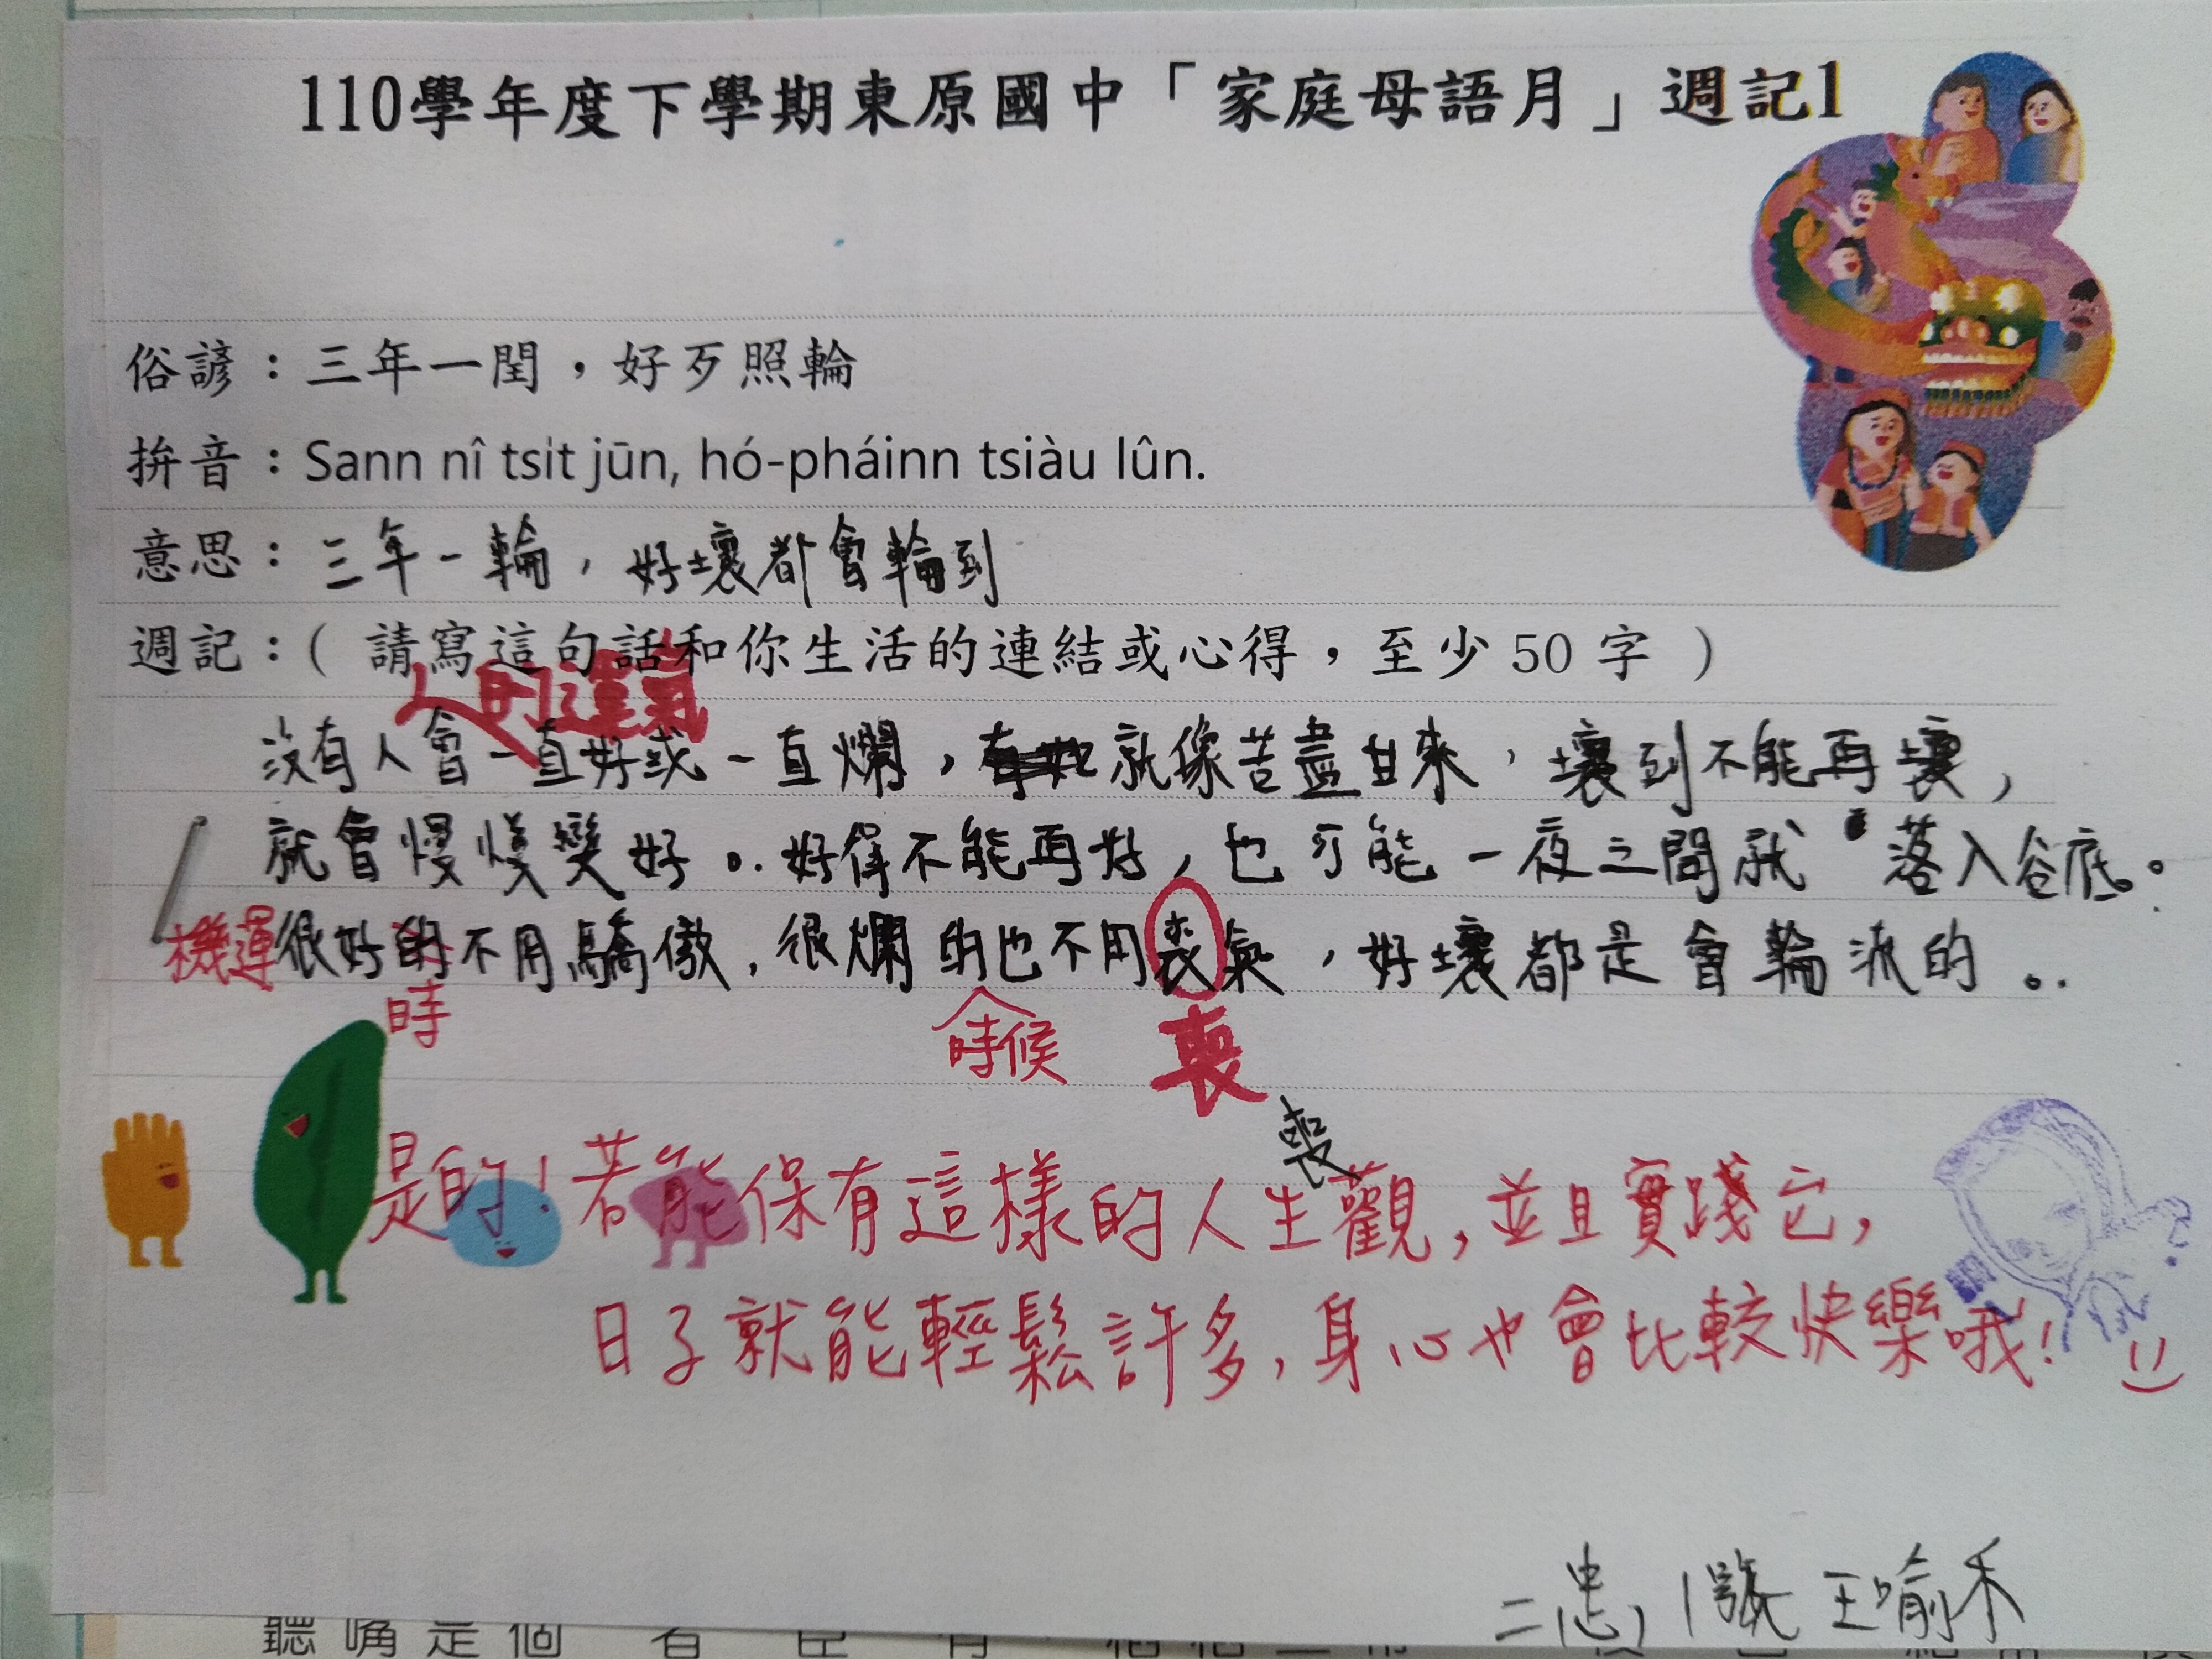 110學年度下學期東原國中「家庭母語月」週記1
俗諺：三年一閏，好歹照輪
拚音：Sann nî tsi̍t jūn, hó-pháinn tsiàu lûn.
意思：三年一輪，好壞都會輪到
週記：( 請寫這句話和你生活的連結或心得，至少 50 字 )
人的運氣
沒有人會一直好或一直爛，就像苦盡甘來，壞到不能再壞，
就會慢慢變好。好得不能再好，也可能一夜之間就落入谷底。
機運很好的不用驕傲，很爛的也不用喪氣，好壞都是會輪流的。
時
時候
喪
喪
是的！若能保有這樣的人生觀，並且實踐它，
日子就能輕鬆許多，身心也會比較快樂哦！
二忠，1號 王喻禾